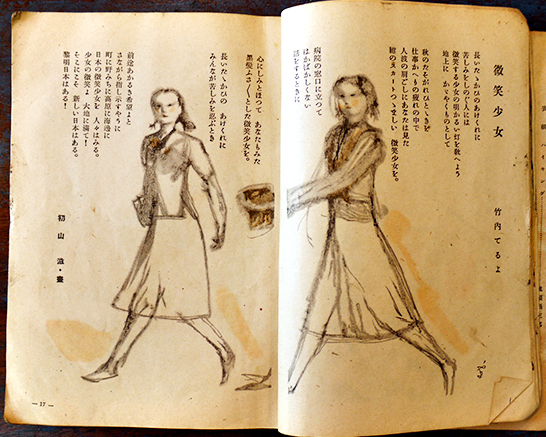 微笑少女
竹内てるよ
長いたゝかひのあけくれに
苦しみをしのぐ人には
微笑する少女の明かるい灯を教へよう
地上に かゞやくものとして
秋のたそがれひとゝきを
仕事かへりの疲れの中で
人波の肩ごしにあなたは見た
紺のスカートつゝましい 微笑少女を。
病院の窓口に立つて
はかばかしくない
話をするときに
心にしみとほつて あなたもみた
黒髪ふさ〱とした微笑少女を。
長いたゝかひの あけくれに
みんなが苦しみを忍ぶとき
前途あかるき希望よと
さながら指し示すやうに
町に野みちに高原に海邊に
日本の微笑少女を 人々はみる。
少女の微笑よ 大地に満て!
そこにこそ 新しい日本はある。
黎明日本はある!
初山 滋・畫
— 27 —